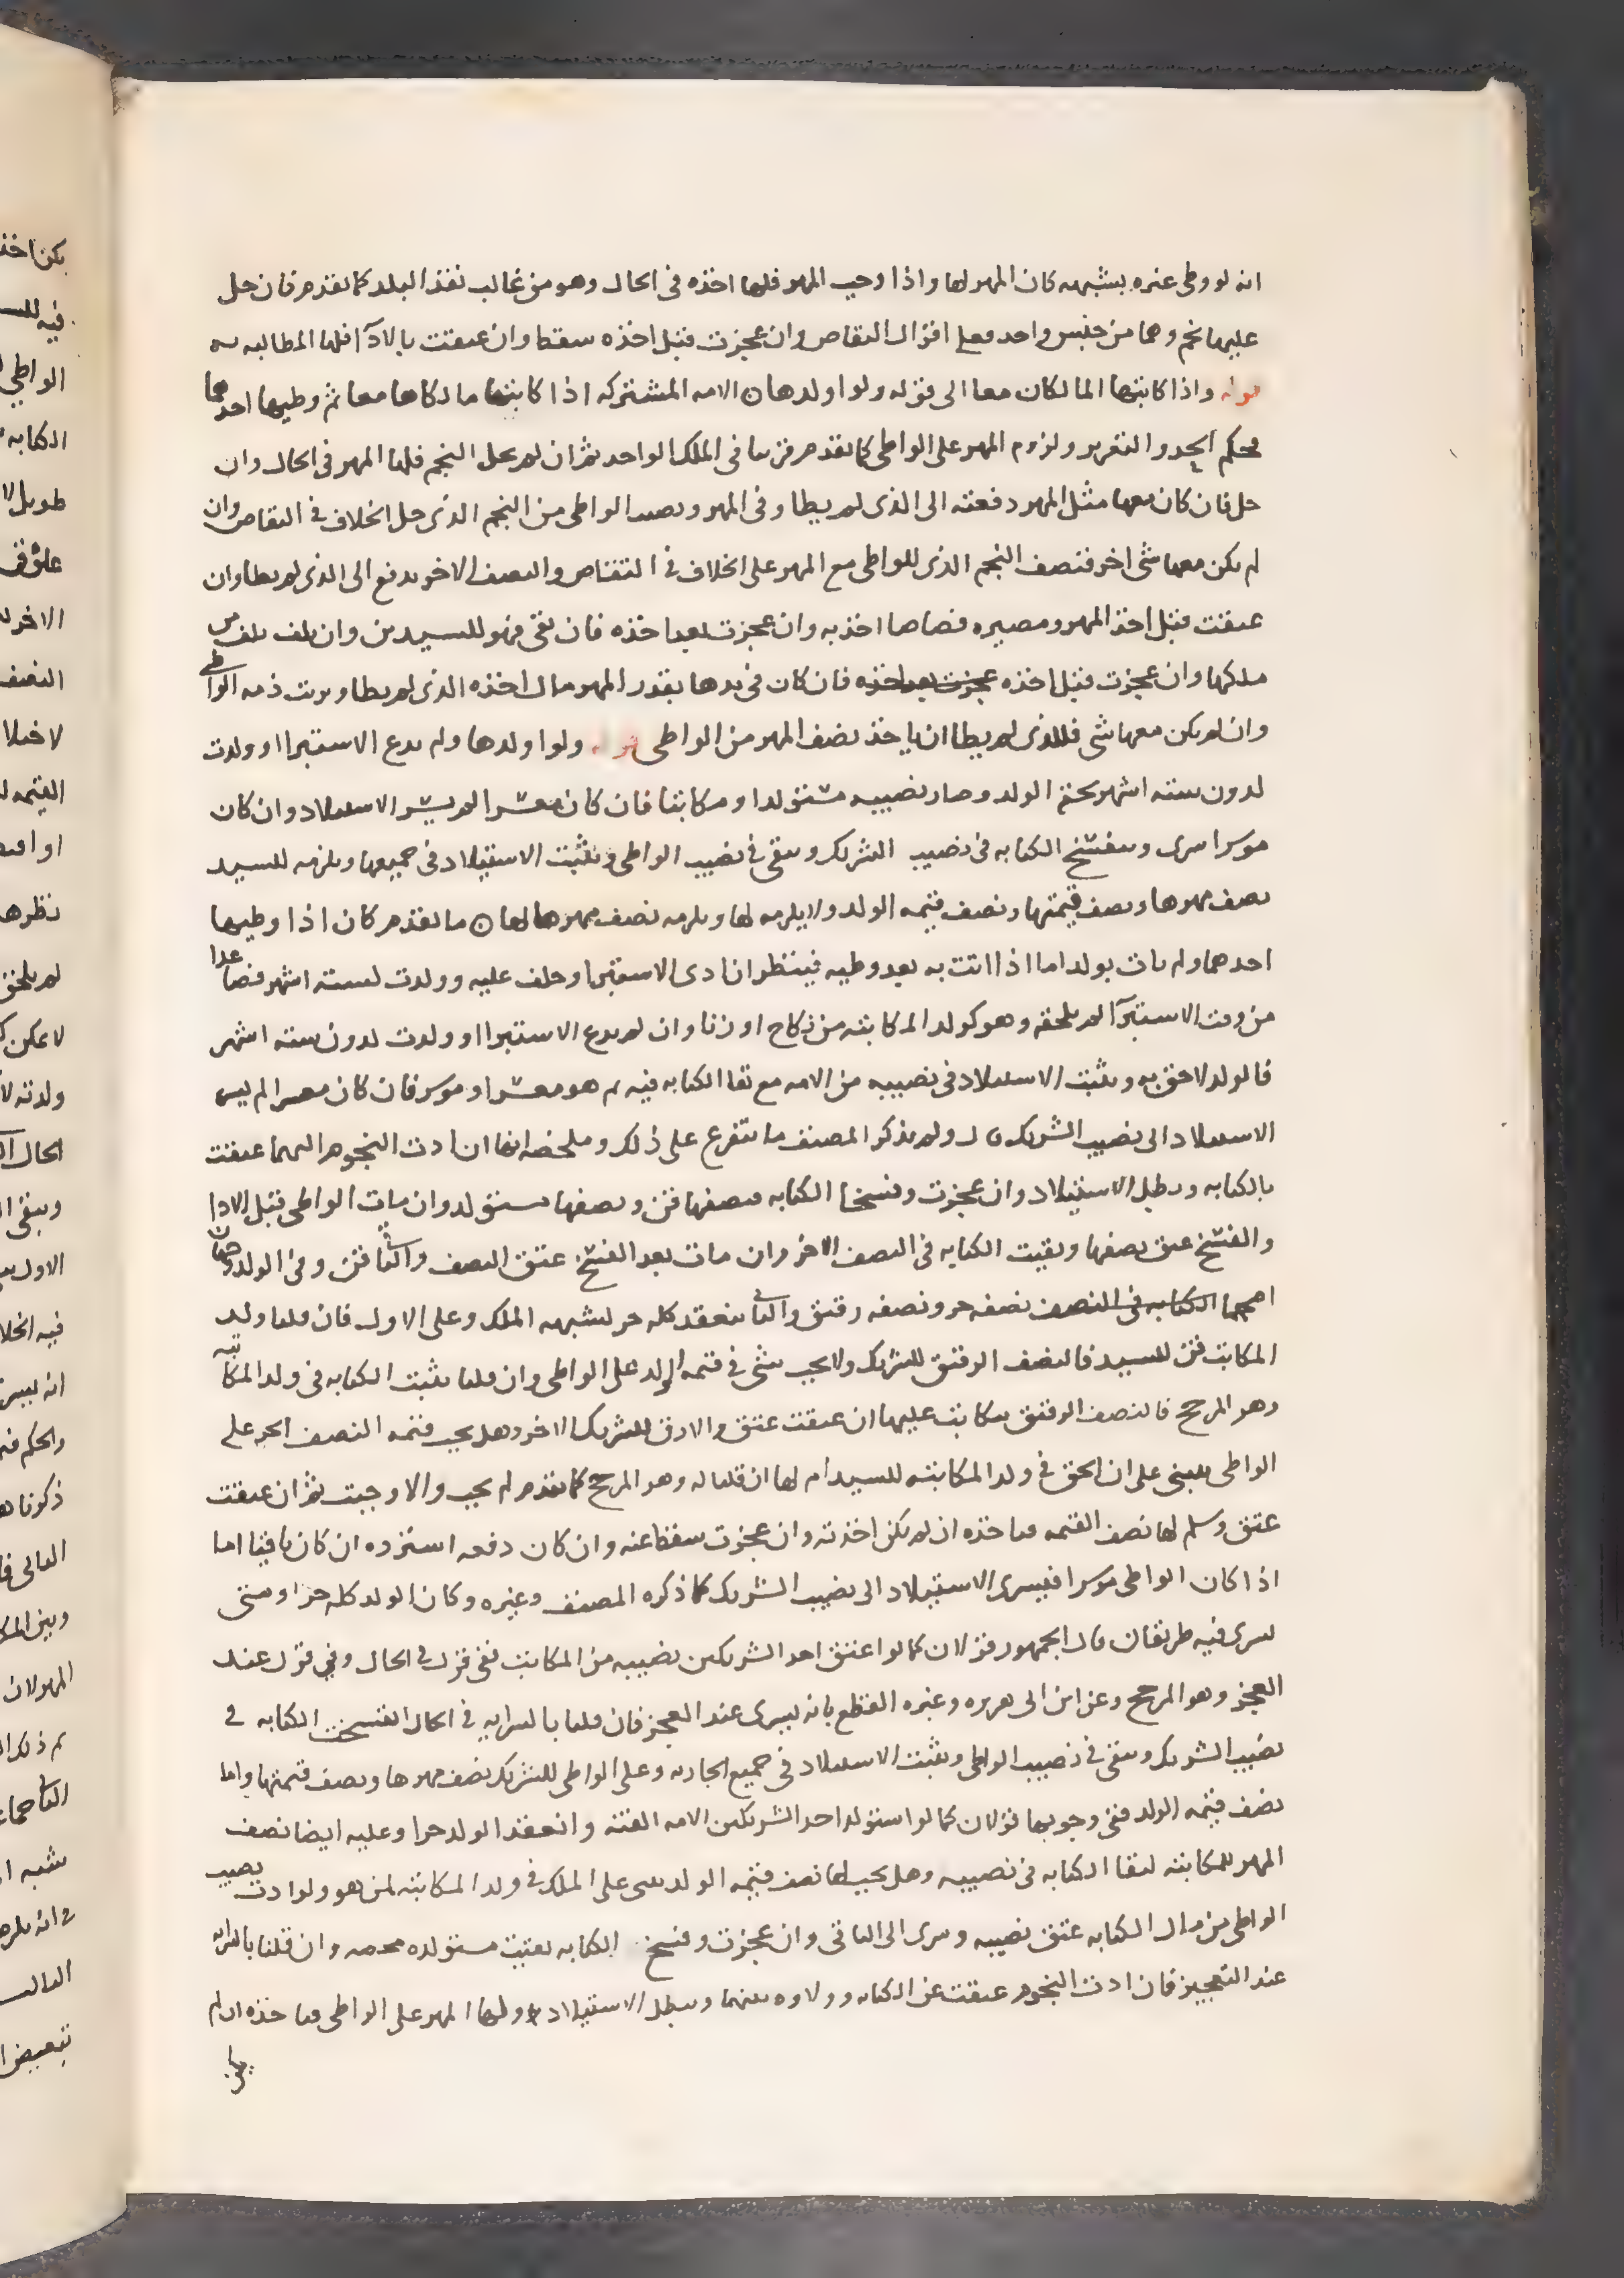 انه لو وطى غيره بشبهه كان المهر لها واذا وجب المهر فلها اخذه في الحال وهو من غالب نقد البلد كما تقدم فان حل
عليها نجم وهما من جنس واحد فعلى اقوال التقاص وان عجزت قبل اخذه سقط وان عتقت بالادآ فلها المطالبه به
قوله واذا كاتبها المالكان معا الى قوله ولو اولدها ن الامه المشتركه اذا كاتبها مالكاها معا ثم وطيها احدهما
فحكم الحد والتعزير ولزوم المهر على الواطى كما تقدم قريبا في الملك الواحد ثم ان لم يحل النجم فلها المهر في الحال وان
حل فان كان معها مثل المهر دفعته الى الذى لم يطا وفي المهر ونصيب الواطى من النجم الذى حل الخلاف في التقاص وان
لم يكن معها شى اخر فنصف النجم الذى للواطى مع المهر على الخلاف في التقاص والنصف الاخر يدفع الى الذى لم يطا وان
عتقت قبل اخذ المهر ومصيره قصاصا اخذ به وان عجزت بعد اخذه فان بقى فهو للسيدين وان تلف تلف من
ملكها وان عجزت قبل اخذه عجزت بعد اخذه فان كان في يدها بقدر المهر مال اخذه الذى لم يطا وبريت ذمه الواطى
وان لم يكن معها شى فللذى لم يطا ان ياخذ نصف المهر من الواطى قوله ولو اولدها ولم يدع الاستبرا او ولدت
لدون سته اشهر لحقه الولد وصار نصيبه مستولدا ومكاتبا فان كان معسرا لم يسر الاستيلاد وان كان
موسرا سرى وينفسخ الكتابه في نصيب الشريك ويبقى في نصيب الواطى ويثبت الاستيلاد في جميعها ويلزمه للسيد
نصف مهرها ونصف قيمتها ونصف قيمه الولد ولا يلزمه لها ويلزمه نصف مهرها لها ن ما تقدم كان اذا وطيها
احدهما ولم يات بولد اما اذا اتت به بعد وطيه فينظر ان ادعى الاستبرا وحلف عليه وولدت لسته اشهر فصاعدا
من وقت الاستبرآ لم يلحقه وهو كولد المكاتبه من نكاح او زنا وان لم يدع الاستبرا او ولدت لدون سته اشهر
فالولد لاحق به ويثبت الاستيلاد في نصيبه من الامه مع بقا الكتابه فيه ثم هو معسر او موسر فان كان معسرا لم يسر
الاستيلاد الى نصيب الشريك ولم يذكر المصنف ما يتفرع على ذلك وملخصه انها ان ادت النجوم اليهما عتقت
بالكتابه وبطل الاستيلاد وان عجزت وفسخا الكتابه فنصفها قن ونصفها مستولد وان مات الواطى قبل الادا
والفسخ عتق نصفها وبقيت الكتابه في النصف الاخر وان مات بعد الفسخ عتق النصف والثانى قن وفي الولد وجهان
اصحهما الكتابه في النصف نصفه حر ونصفه رقيق والثانى ينعقد كله حر لشبهه الملك وعلى الاول فان قلنا ولد
المكاتب قن للسيد فالنصف الرقيق للشريك ولا يجب شى في قيمه الولد على الواطى وان قلنا يثبت الكتابه في ولد المكاتبه
وهو المرجح فالنصف الرقيق يتكاتب عليها ان عتقت عتق والا رق للشريك الاخر وهل يجب قيمه النصف الحر على
الواطى يبنى على ان الحق في ولد المكاتبه للسيد ام لها ان قلنا له وهو المرجح كما تقدم لم يجب والا وجبت ثم ان عتقت
عتق وسلم لها نصف القيمه فتاخذه ان لم يكن اخذته وان عجزت سقط عنه وان كان دفعه استرده ان كان باقيا اما
اذا كان الواطى موسرا فيسرى الاستيلاد الى نصيب الشريك كما ذكره المصنف وغيره وكان الولد كله حرا ومتى
يسرى فيه طريقان قال الجمهور قولان كما لو اعتق احد الشريكين نصيبه من المكاتب ففي قول في الحال وفي قول عند
العجز وهو المرجح وعن ابن ابى هريره وغيره القطع بانه يسرى عند العجز فان قلنا بالسرايه في الحال انفسخت الكتابه في
نصيب الشريك ويبقى في نصيب الواطى ويثبت الاستيلاد في جميع الجاريه وعلى الواطى للشريك نصف مهرها ونصف قيمتها واما
نصف قيمه الولد ففي وجوبها قولان كما لو استولد احد الشريكين الامه القنه وانعقد الولد حرا وعليه ايضا نصف
المهر للمكاتبه لبقا الكتابه في نصيبه وهل يجب لها نصف قيمه الولد يبنى على الملك في ولد المكاتبه لمن هو ولو ادت نصيب
الواطى من مال الكتابه عتق نصيبه وسرى الى الباقى وان عجزت وفسخ الكتابه بقيت مستولده محضه وان قلنا بالسرايه
عند التعجيز فان ادت النجوم عتقت عن الكتابه وولاوه بينهما وبطل الاستيلاد ولها المهر على الواطى فتاخذه ان لم
يكن